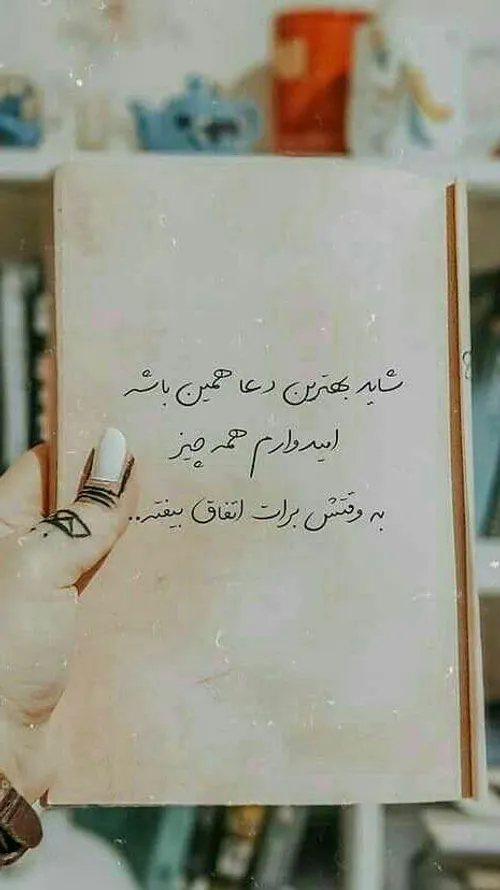 شاید بهترین دعا همین باشه
امیدوارم همه چیز
به وقتش برات اتفاق بیفته..